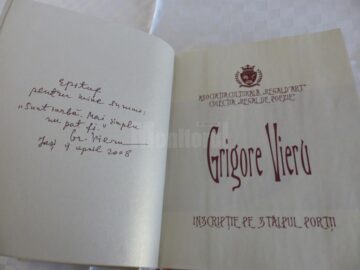 Epitaf
pentru mine însumi:
„Sunt iarbă. Mai simplu
nu pot fi."
Gr. Vieru
Iași 9 april 2008
ASOCIAȚIA CULTURALĂ „REGALD'ART"
COLECȚIA „REGAL DE POEZIE"
Grigore Vieru
INSCRIPȚIE PE STÂLPUL PORȚII
Monitorul